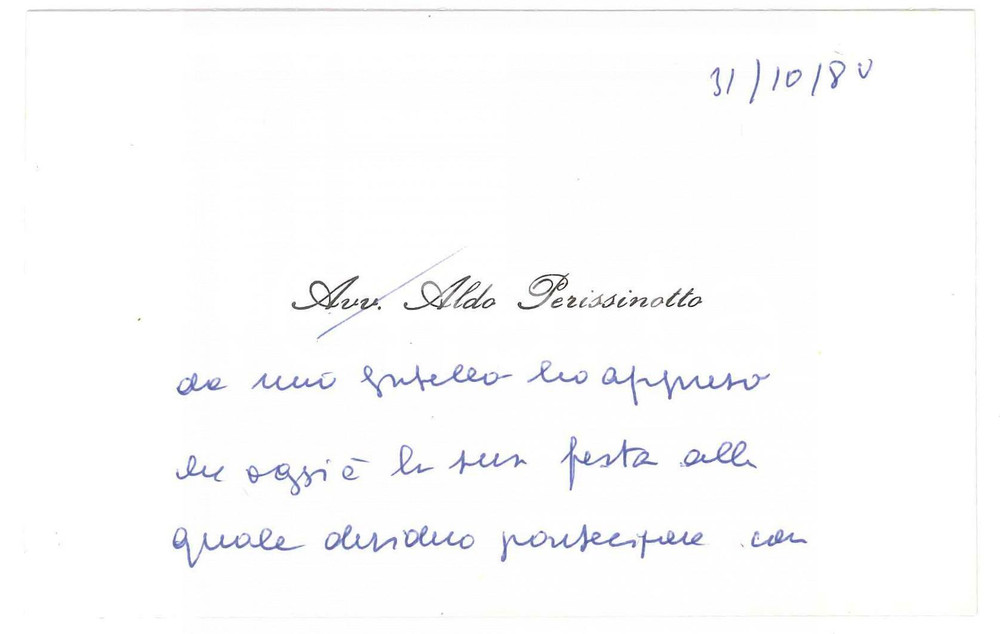 31/10/80
Avv. Aldo Perissinotto
da mio fratello ho appreso
che oggi è la sua festa alla
quale desidero partecipare con